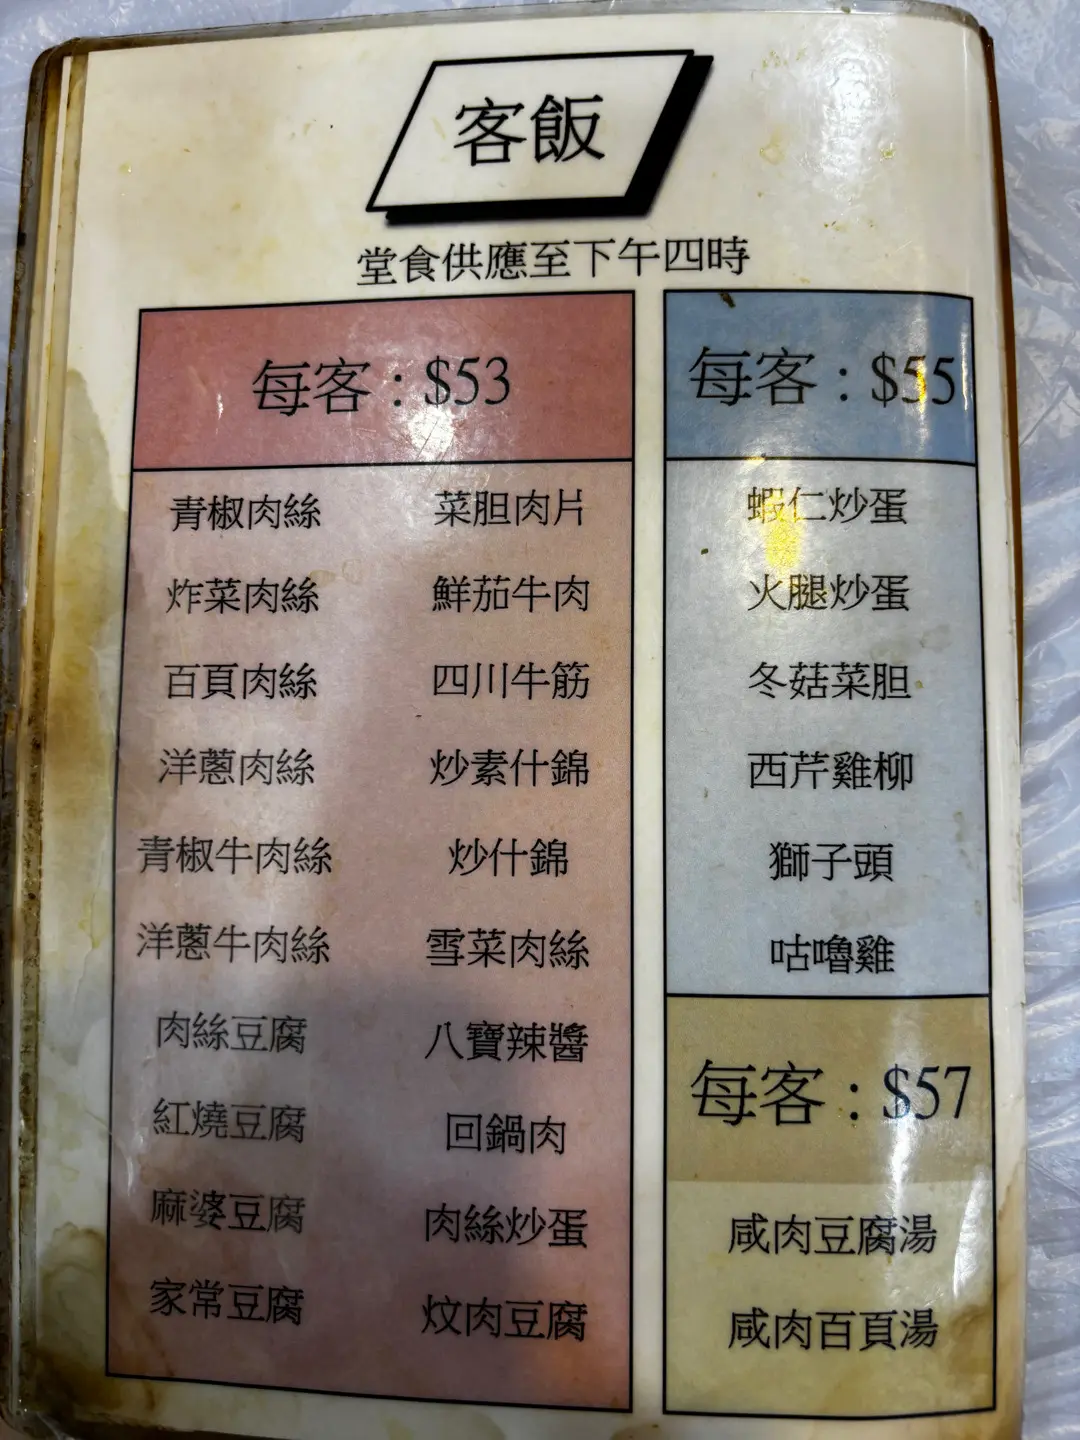 客飯
堂食供應至下午四時
每客：$53
青椒肉絲 菜胆肉片
炸菜肉絲 鮮茄牛肉
百頁肉絲 四川牛筋
洋蔥肉絲 炒素什錦
青椒牛肉絲 炒什錦
洋蔥牛肉絲 雪菜肉絲
肉絲豆腐 八寶辣醬
紅燒豆腐 回鍋肉
麻婆豆腐 肉絲炒蛋
家常豆腐 炆肉豆腐
每客：$55
蝦仁炒蛋
火腿炒蛋
冬菇菜胆
西芹雞柳
獅子頭
咕嚕雞
每客：$57
咸肉豆腐湯
咸肉百頁湯